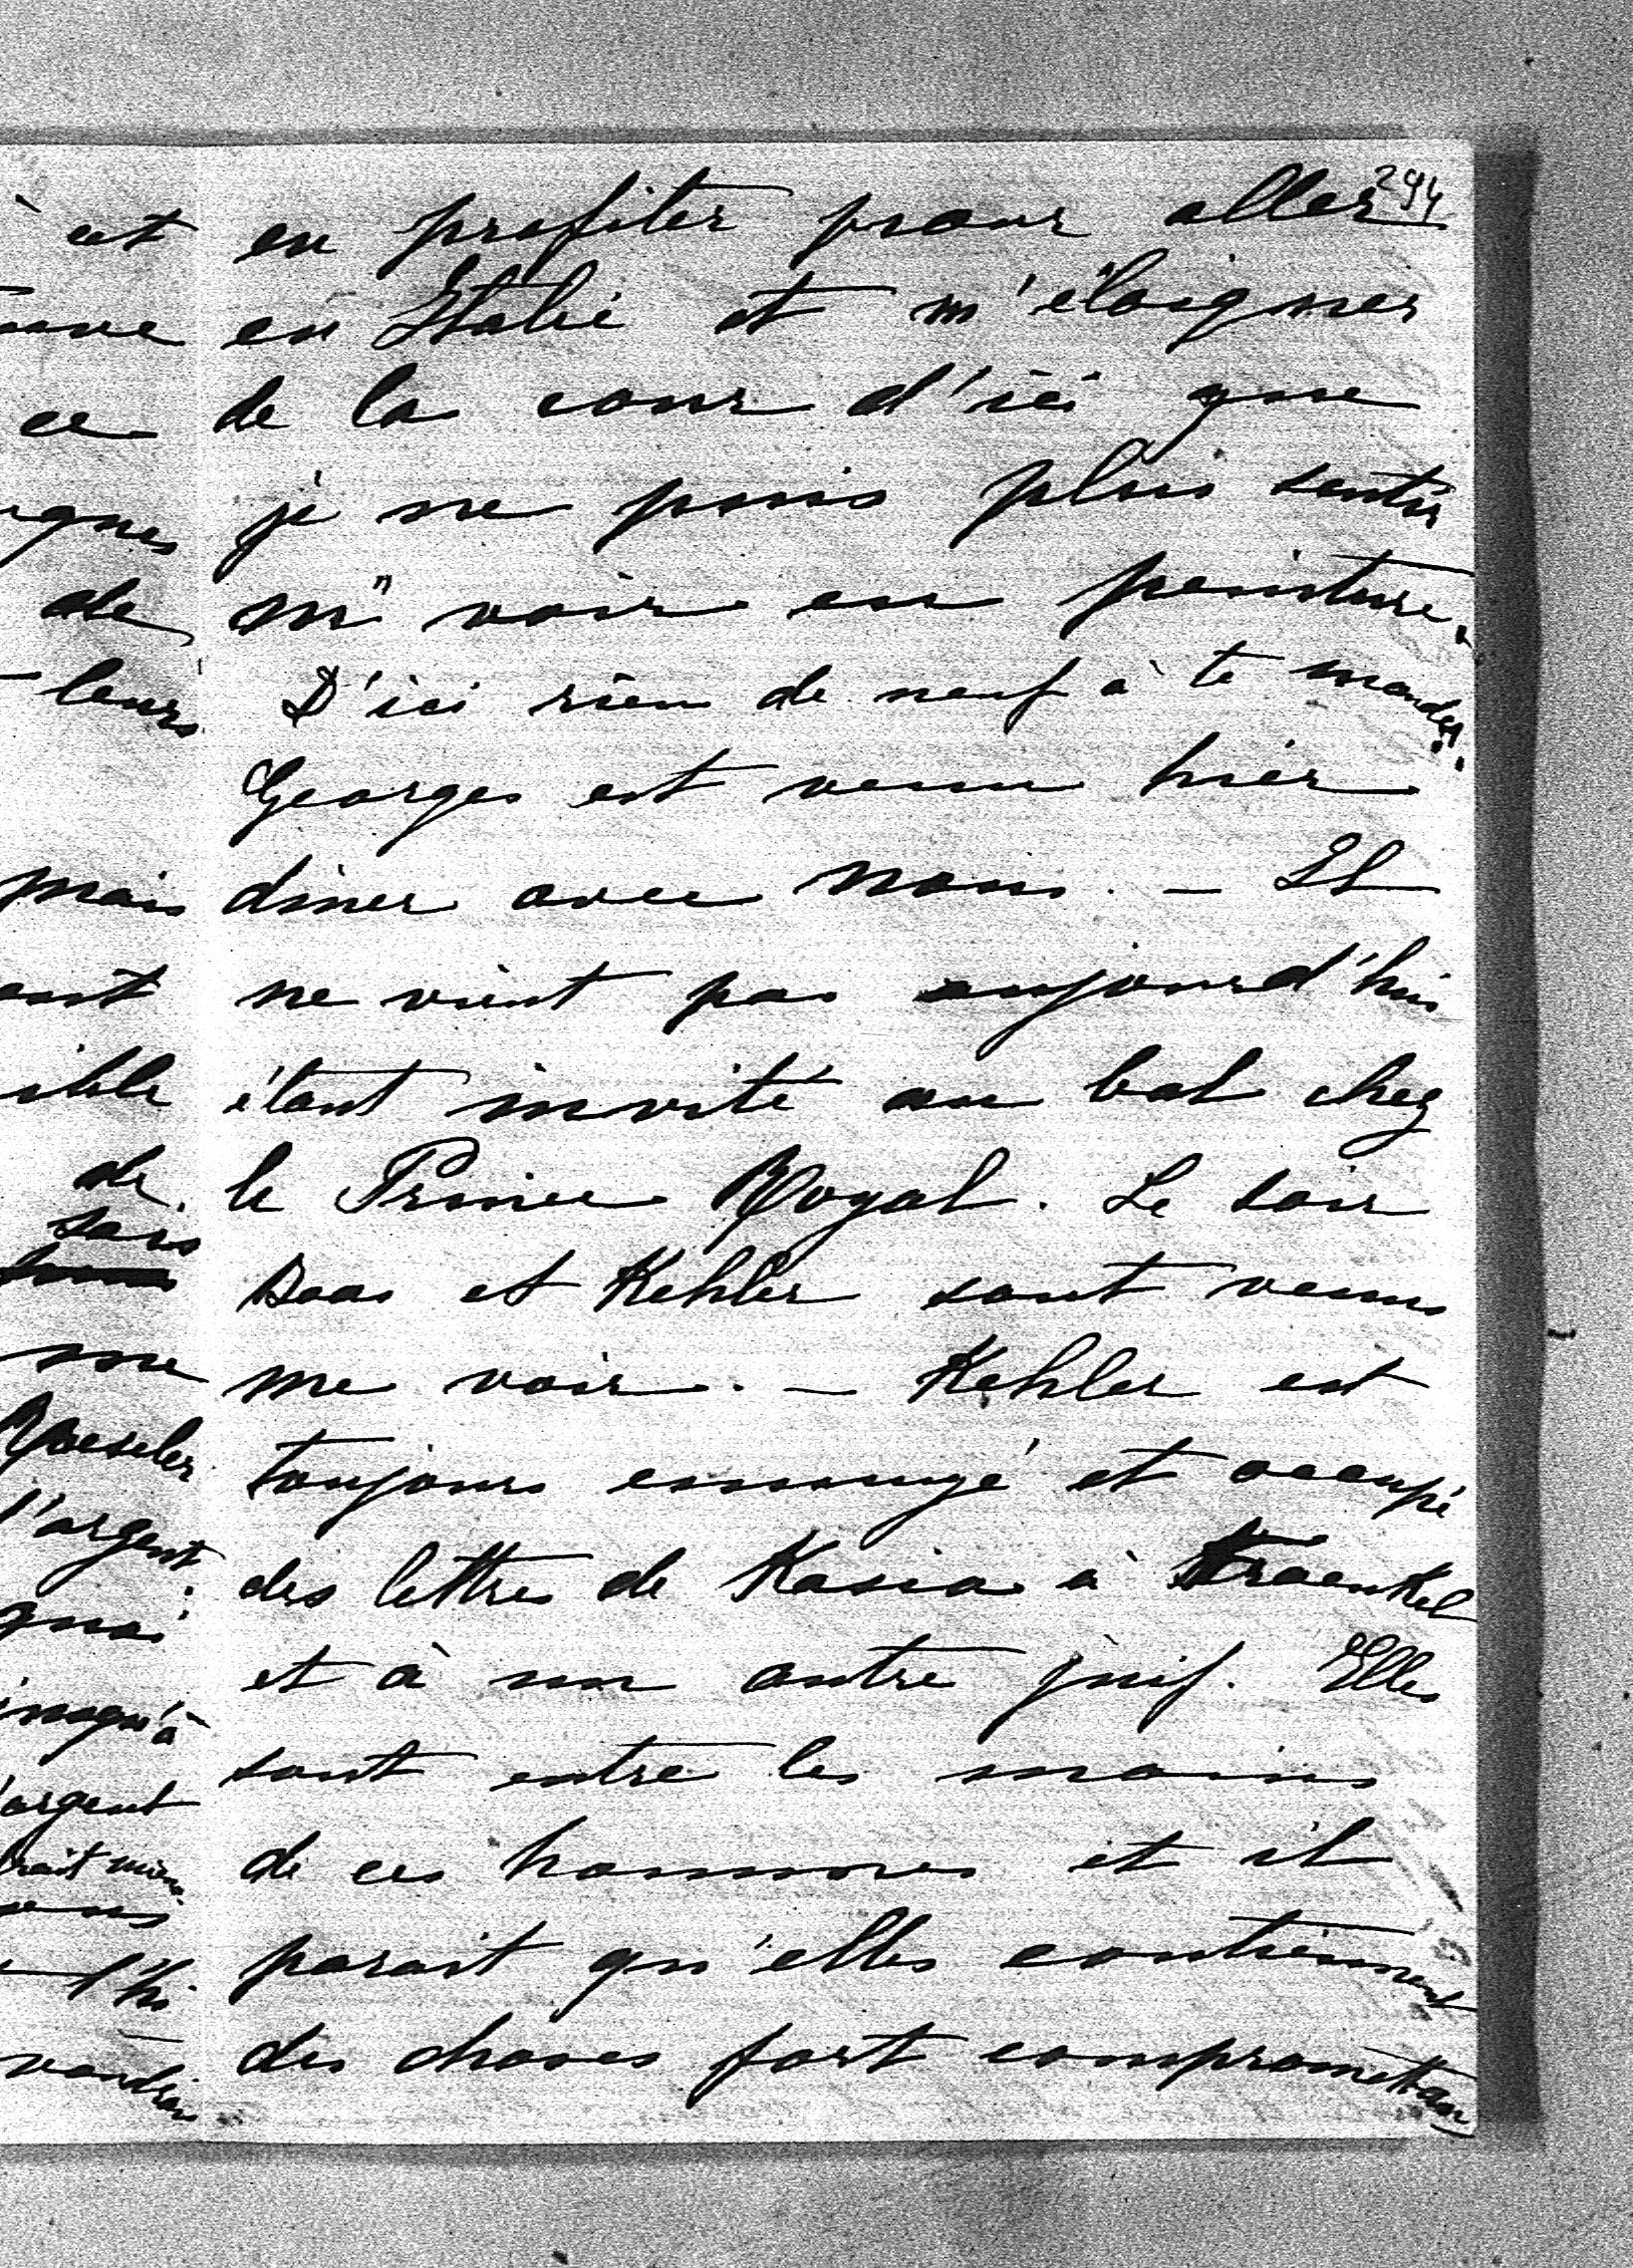 294
en profiter pour aller
en Italie et m'éloigner
de la cour d'ici que
je ne puis plus sentir
ni voir en peinture.
D'ici rien de neuf à te mander.
Georges est venu hier
diner avec nous. — Il
ne vient pas aujourd'hui
étant invité au bal chez
le Prince Royal. Le soir
et Kehler sont venus
me voir. — Kehler est
toujours ennuyé et occupé
des lettres de Kasia à Fraenkel
et à un autre juif. Elles
sont entre les mains
de ces hommes et il
parait qu'elles contiennent
des choses fort compromettan
et
ce
de
leurs
mais
ible
de
sais
me
l'argent
quoi
jusqu'à
argent
voudrais